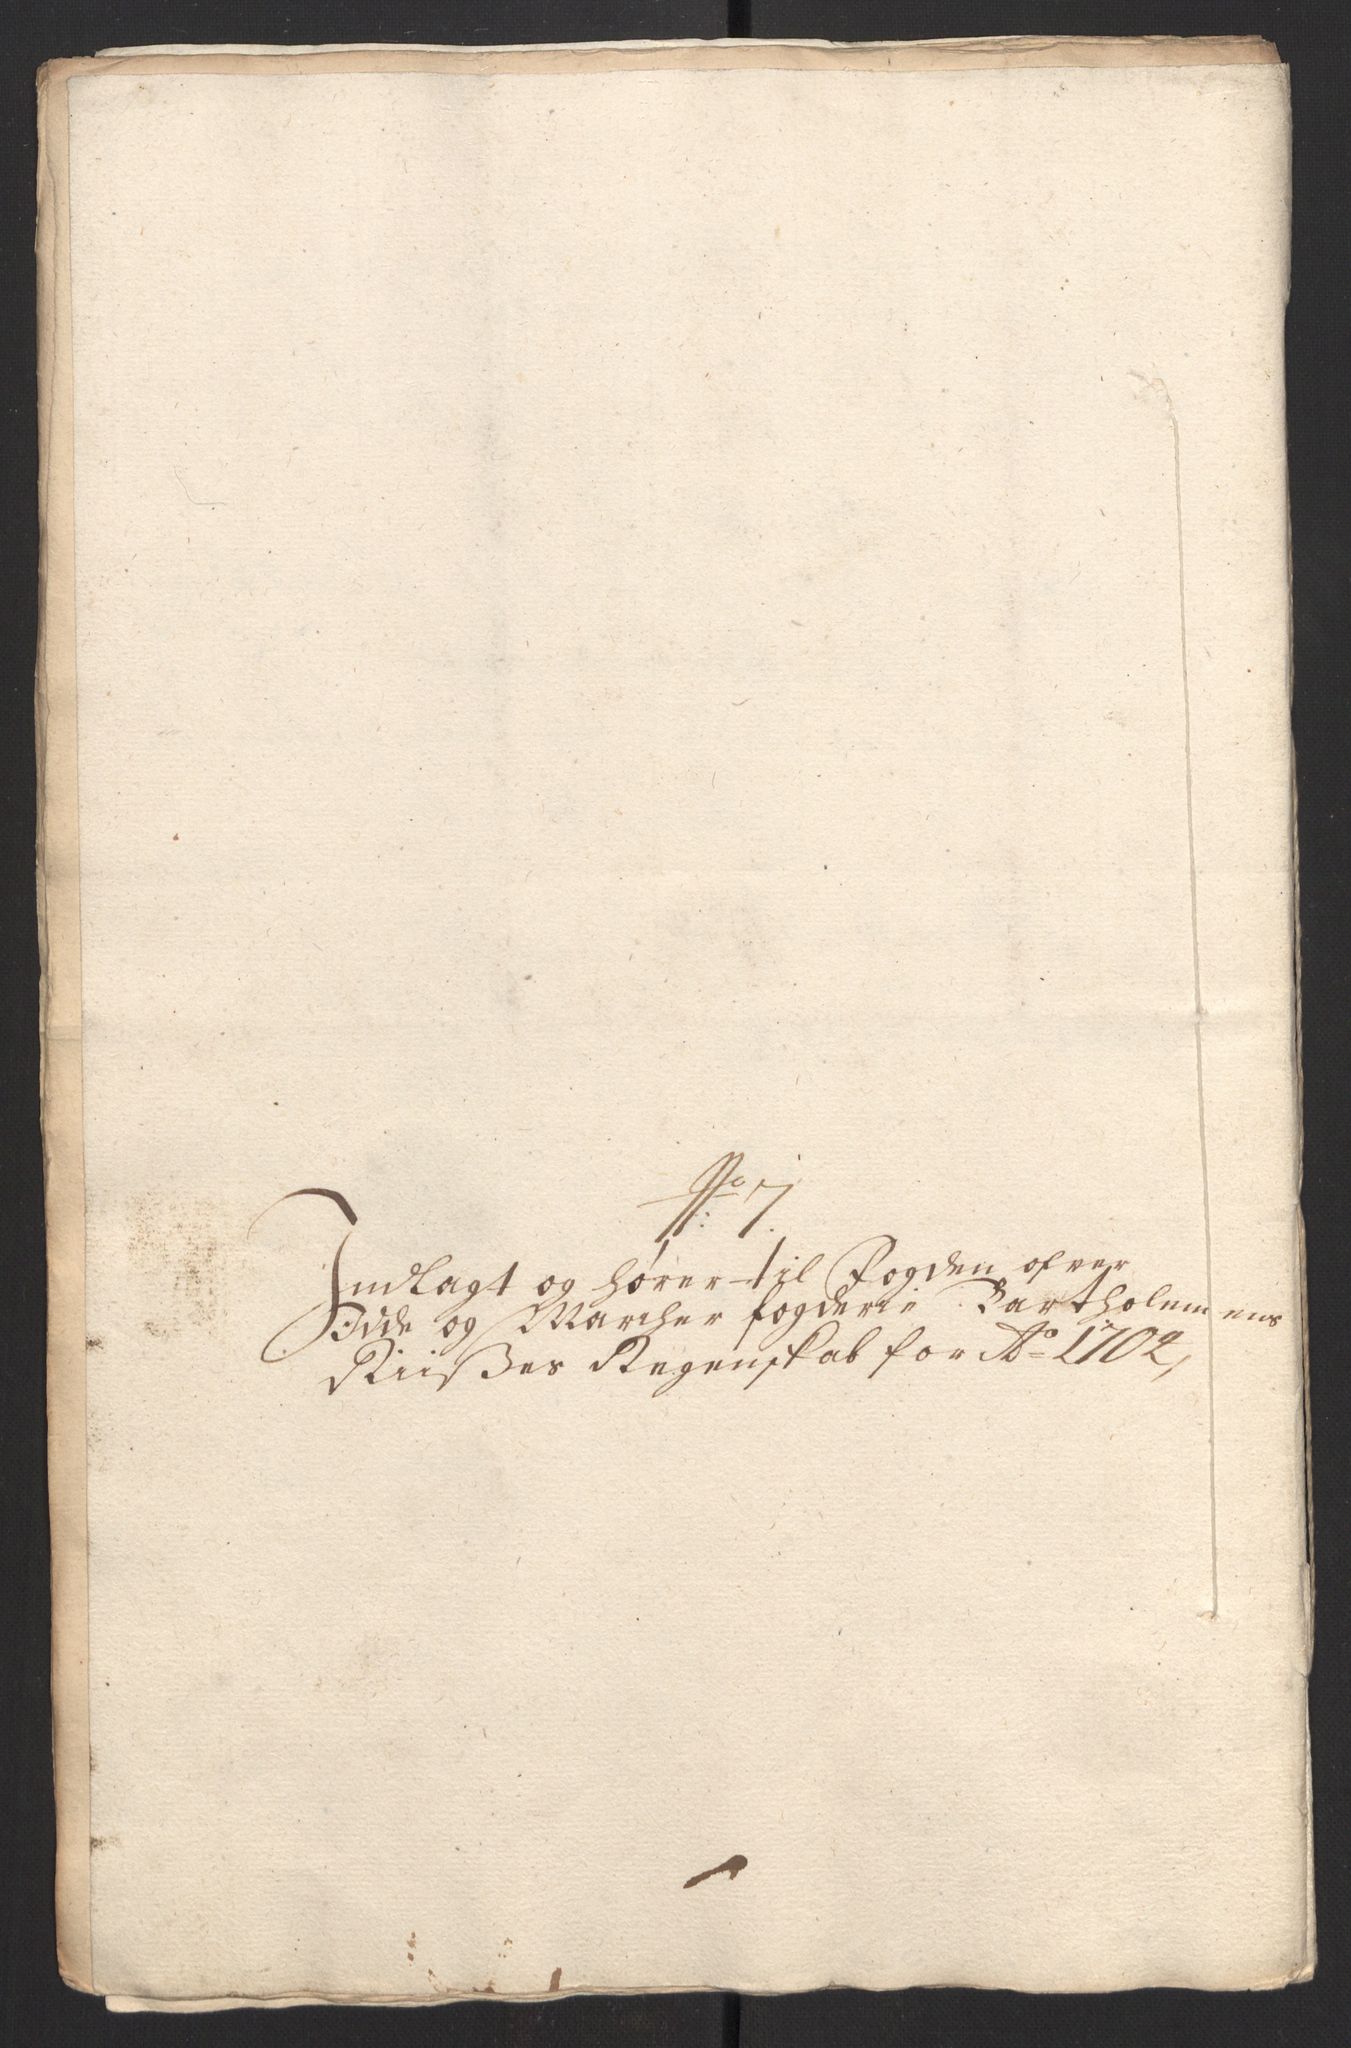 No 7.
Indlagt og hører til Fogden ofver
Idde og Marcher fogderie Bartholemæus
Riisses Regenskab for Ao 1702,